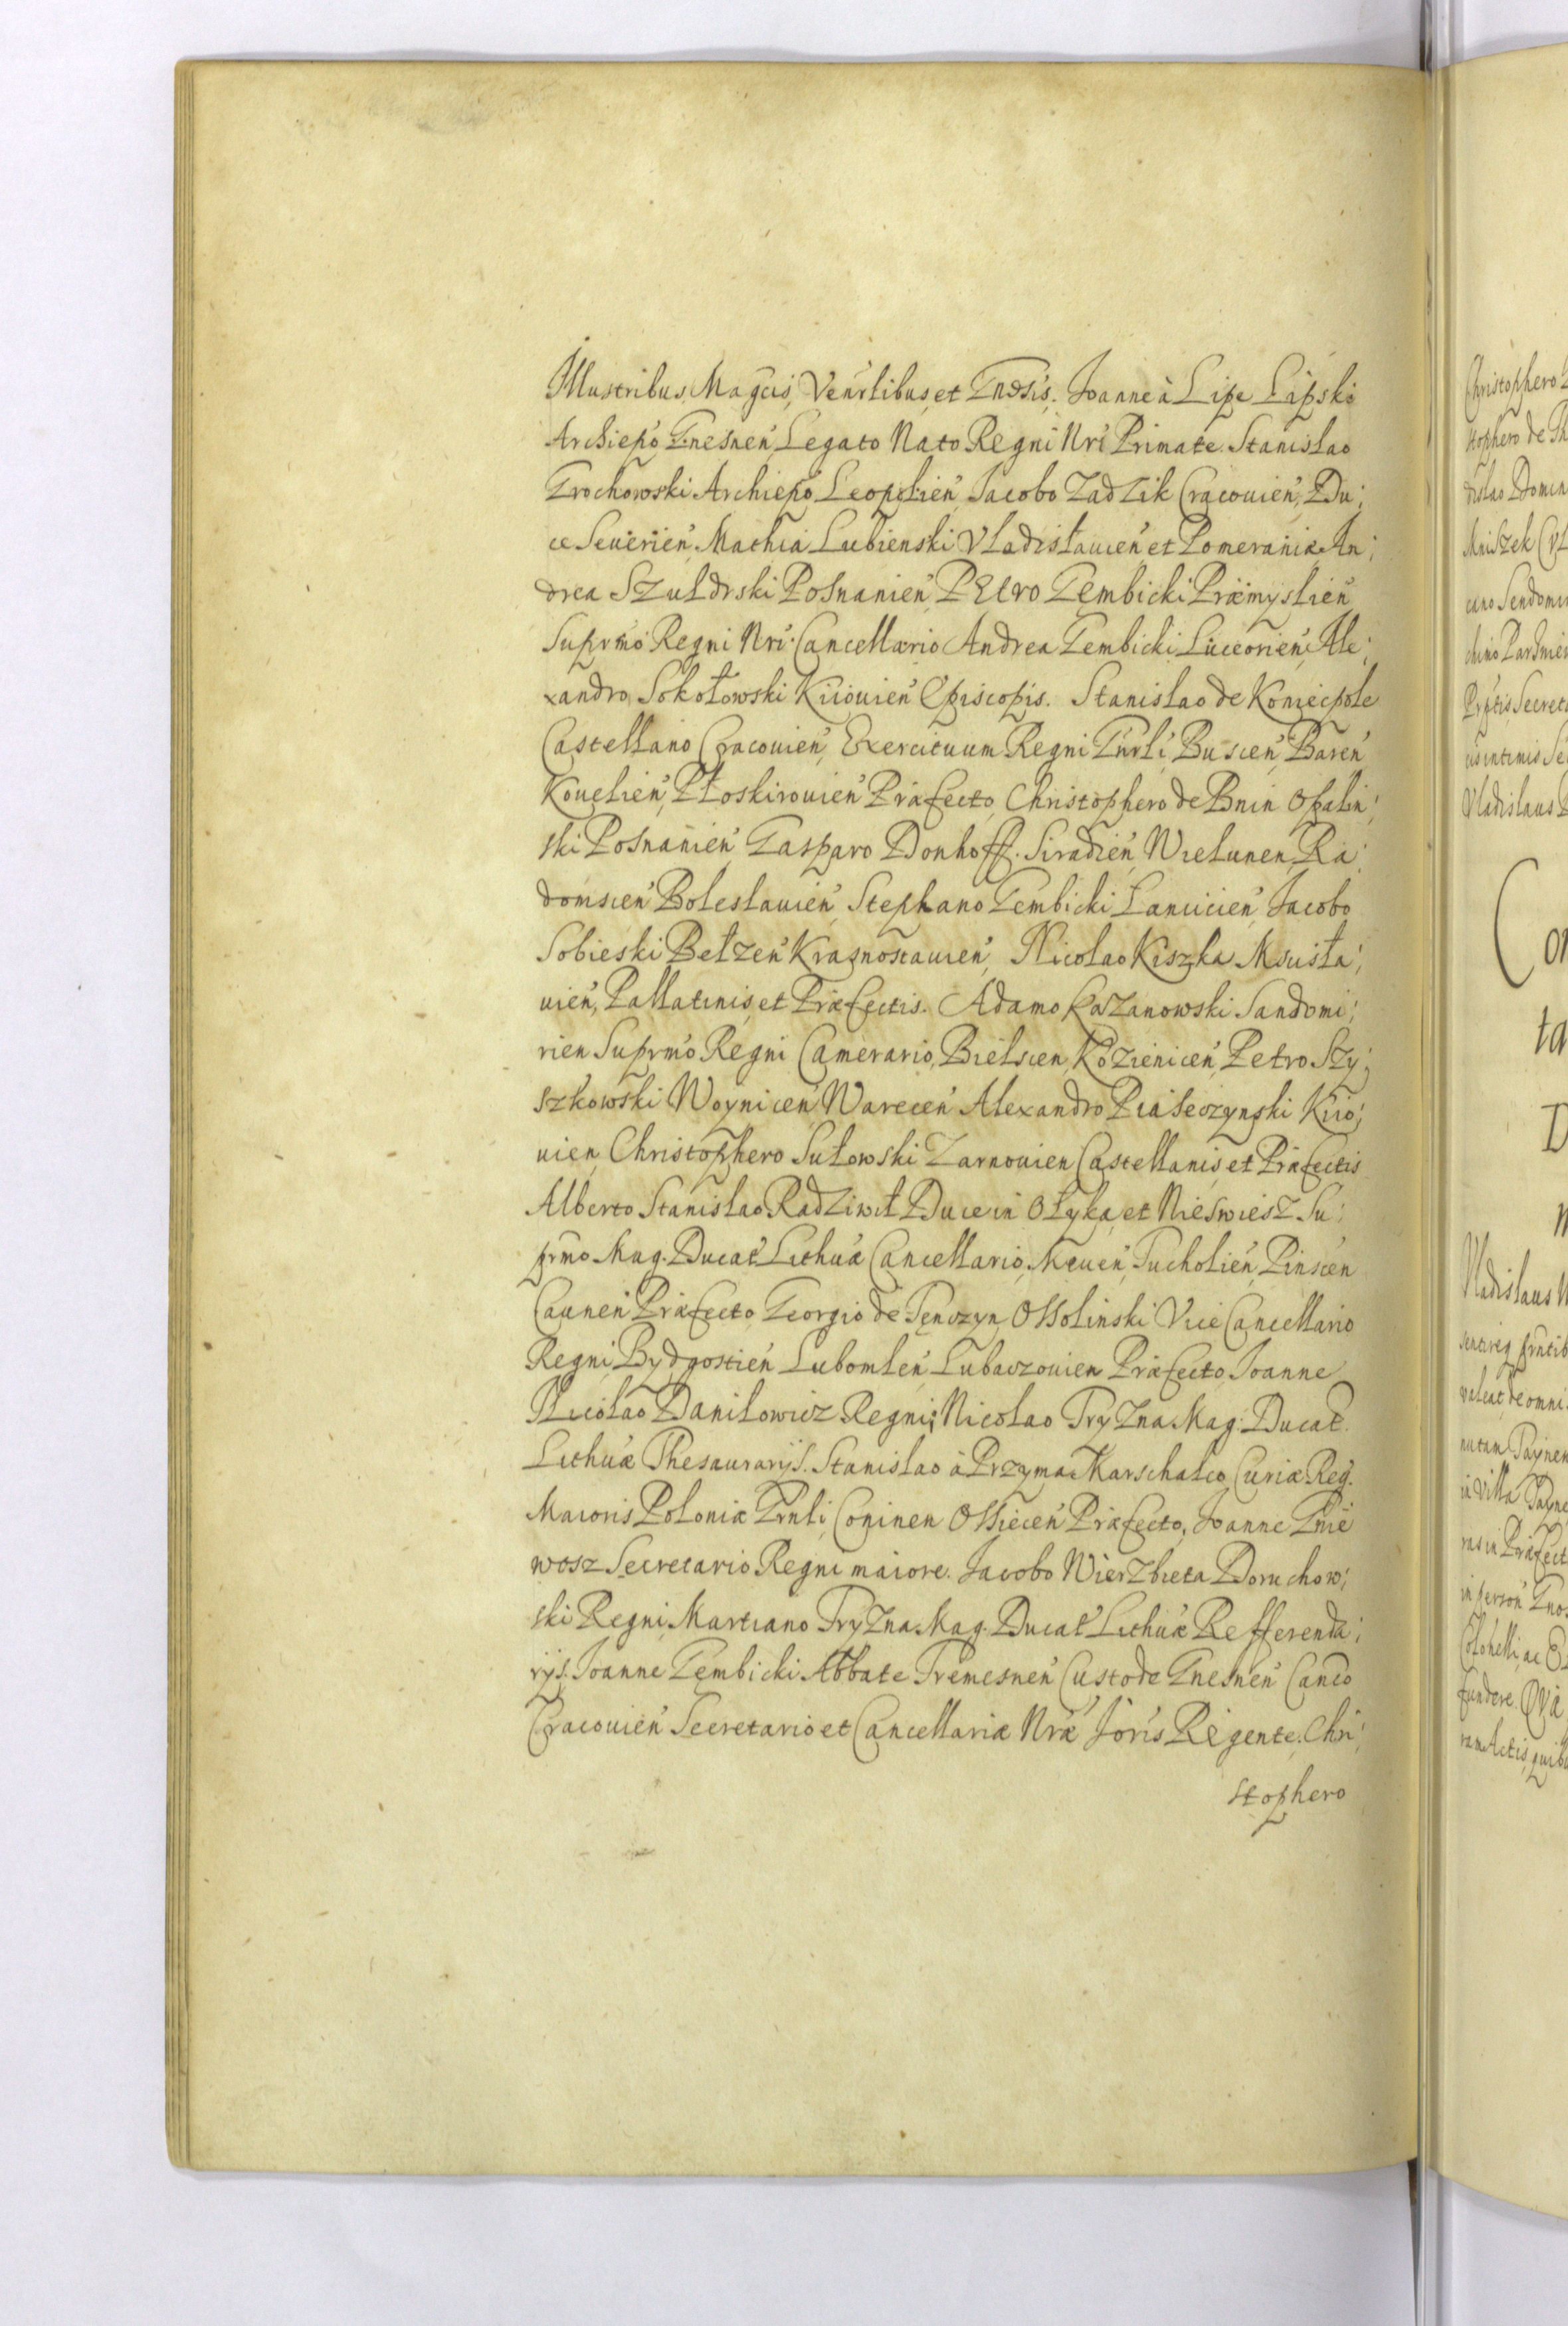 Illustribus, Magcis, Venrlibus, et Gnosis. Joanne à Lipe Lipski
Archiepo Gnesnen Legato Nato Regni Nri Primate. Stanislao
Grochowski Archiepo Leopolien, Jacobo Zadzik Cracouien, Du;
ce Seuerien Mathia Lubienski Vladislauien et Pomeraniæ An;
drea Szuldrski Posnanien Petro Gembicki Præmyslien
Suprmo Regni Nri Cancellario Andrea Gembicki Luceorien, Ale;
xandro Sokołowski Kiiouien Episcopis. Stanislao de Koniecpole
Castellano Cracouien, Exercituum Regni Gnrli, Buscen, Baren
Kouelien, Płoskirouien Præfecto, Christophero de Bnin Opalin;
ski Posnanien Gasparo Donhoff. Siradien, Wielunen, Ra;
domscen Boleslauien, Stephano Gembicki Lancicien Jacobo
Sobieski Belzen Krasnostauien, Nicolao Kiszka Mscisla;
uien, Pallatinis, et Præfectis. Adamo Kazanowski Sandomi;
rien Suprmo Regni Camerario, Bielscen, Kozienicen, Petro Szy;
szkowski Woynicen, Warecen Alexandro Piaseczynski Kiio;
uien, Christophero Sułowski Zarnouien Castellanis, et Præfectis
Alberto Stanislao Radziwił Duce in Ołyka, et Nieswiesz Su;
prmo Mag. Ducat Lithuæ Cancellario, Meuen, Tucholien, Pinscen
Caunen Præfecto, Georgio de Tęnczyn Ossolinski Vice Cancellario
Regni, Bydgostien Lubomlen, Lubaczouien Præfecto, Joanne
Nicolao Daniłowicz Regni; Nicolao Tryzna Mag. Ducat.
Lithuæ Thesaurarijs. Stanislao à Przyma Marschalco Curiæ Reg.
Maioris Poloniæ Gnli, Coninen Ossiecen Præfecto, Joanne Gnie
wosz Secretario Regni maiore. Jacobo Wierzbieta Doruchow;
ski Regni, Martiano Tryzna Mag. Ducat Lithuæ Refferenda;
rijs. Joanne Gembicki Abbate Tremesnen Custode Gnesnen Canco
Cracouien Secretario et Cancellariæ Nræ Joris Regente. Chri;
stophero